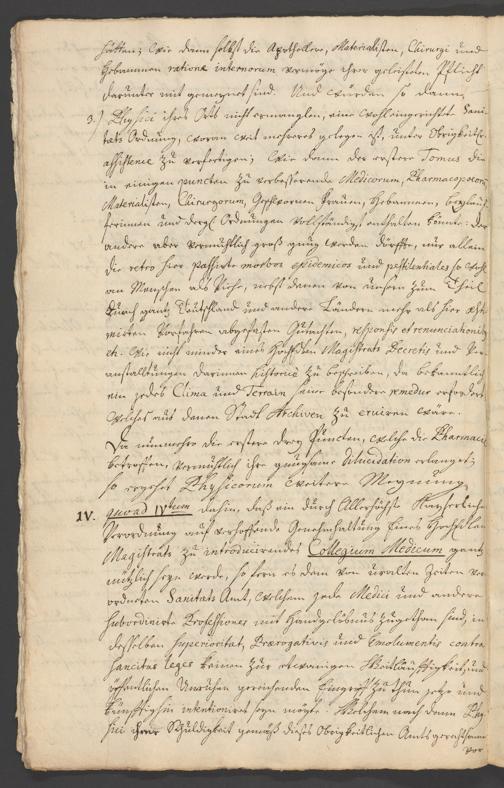 hätten; Wie dann selbst die Apothecker, Materialisten, Chirurgi und
Hebammen ratione internorum vermöge ihrer geleisteten Pflicht
darunter mit gemeynet sind. Und würden so dann
3.) Physici ihres Orts nicht ermanglen, eine wohleingerichte Sani-
tats Ordnung, woran mit mehreres gelegen ist, unter Obrigkeitl.
assistence zu verfertigen; Wie dann der erstere Tomus die
in einigen puncten zu verbesserende Medicorum, Pharmacopoeorum
Materialisten, Chirurgorum, Geschwornen Frauen, Hebammen,
und dergl. Ordnungen vollständigst enthalten könnte: Der
andere aber vermuthlich groß genug werden dörffte, nur allein
die retro hier passirte morbos epidemicos und pestilentiales so wohl
an Menschen als Viehe, nebst denen von unsern zum Theil
durch gantz Teutschland und andere Ländern mehr als hier
Vorfahren abgefaßten Gutachten, responsis et renunciationib.
etc. Wie nicht minder eines Hochedlen Magistrats Decretis und Ver-
anstalltungen darinnen historicè zu beschreiben, da bekanntlich
ein jedes Clima und Terrain seine besondere remedur erfordert
welches aus denen Stadt Archiven zu eruiren wäre.
Da nunmehro die erstere drey Puncten, welche die Pharmacie
betroffen, vermuthlich ihre genugsame Dilucidation erlanget;
so ergehet Physicorum weitere Meynung
IV. quoad IVtum dahin, daß ein durch Allerhöchste Kayserliche
Verordnung auf verhoffende Genehmhaltung Eines HochEdlen
Magistrats zu introducirendes Collegium Medicum gantz
nützlich seyn werde, so fern es dem von uralten Zeiten ver-
ordneten Sanitats Amt, welchem jede Medici und andere
subordinirte Professiones mit Handgelübnus zugethan sind, in
desselben Superioritat, Praerogativis und Emolumentis contra
sancitas leges keinen zur etwanigen Weitläuffigkeit und
öffentlichen Unruhen gereichenden Eingriff zu thun jetzo und
künfftighin intentioniret seyn mögte. Welchem nach denn Phy-
sici ihrer Schuldigkeit gemäß dieses Obrigkeitlichen Amts gerechtsame
vor